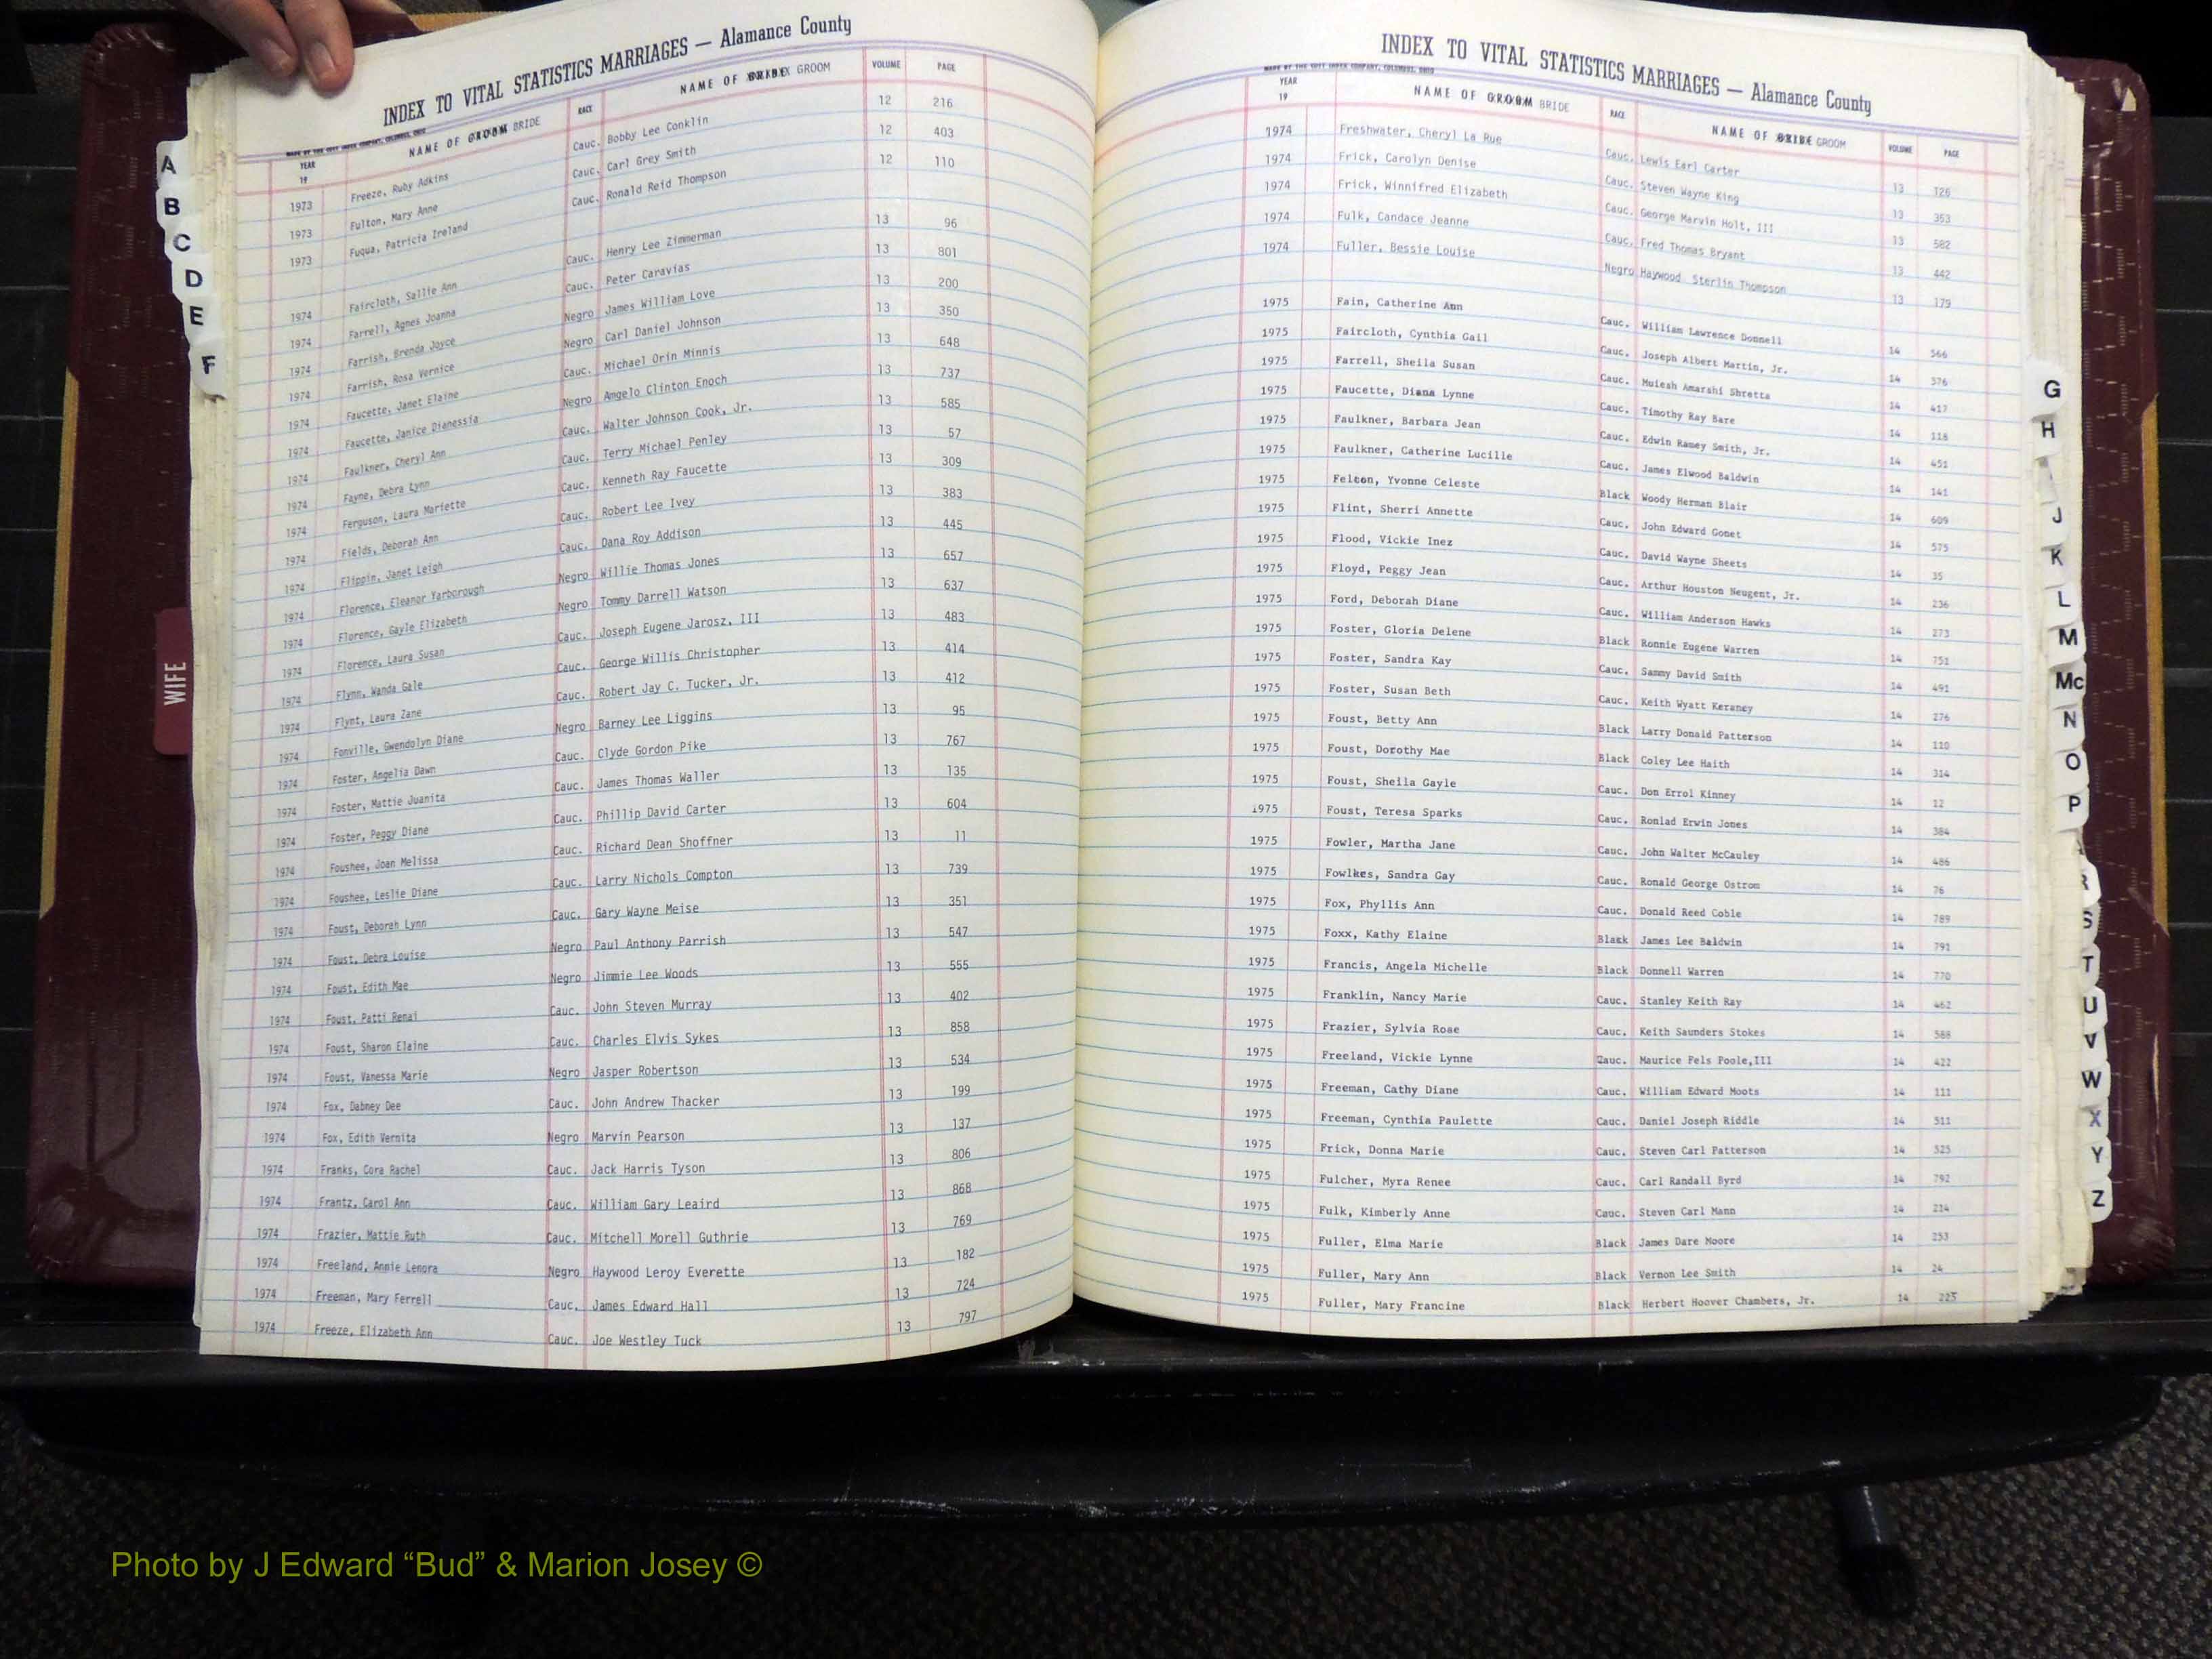 INDEX TO VITAL STATISTICS MARRIAGES — Alamance County
MADE BY THE COTT INDEX COMPANY, COLUMBUS, OHIO
YEAR 19 NAME OF GROOM BRIDE RACE NAME OF BRIDE GROOM VOLUME PAGE
1973 Freeze, Ruby Adkins Cauc. Bobby Lee Conklin 12 216
1973 Fulton, Mary Anne Cauc. Carl Grey Smith 12 403
1973 Fuqua, Patricia Ireland Cauc. Ronald Reid Thompson 12 110
1974 Faircloth, Sallie Ann Cauc. Henry Lee Zimmerman 13 96
1974 Farrell, Agnes Joanna Cauc. Peter Caravias 13 801
1974 Farrish, Brenda Joyce Negro James William Love 13 200
1974 Farrish, Rosa Vernice Negro Carl Daniel Johnson 13 350
1974 Faucette, Janet Elaine Cauc. Michael Orin Minnis 13 648
1974 Faucette, Janice Dianessia Negro Angelo Clinton Enoch 13 737
1974 Faulkner, Cheryl Ann Cauc. Walter Johnson Cook, Jr. 13 585
1974 Fayne, Debra Lynn Cauc. Terry Michael Penley 13 57
1974 Ferguson, Laura Marlette Cauc. Kenneth Ray Faucette 13 309
1974 Fields, Deborah Ann Cauc. Robert Lee Ivey 13 383
1974 Flippin, Janet Leigh Cauc. Dana Roy Addison 13 445
1974 Florence, Eleanor Yarborough Negro Willie Thomas Jones 13 657
1974 Florence, Gayle Elizabeth Negro Tommy Darrell Watson 13 637
1974 Florence, Laura Susan Cauc. Joseph Eugene Jarosz, III 13 483
1974 Flynn, Wanda Gale Cauc. George Willis Christopher 13 414
1974 Flynt, Laura Zane Cauc. Robert Jay C. Tucker, Jr. 13 412
1974 Fonville, Gwendolyn Diane Negro Barney Lee Liggins 13 95
1974 Foster, Angelia Dawn Cauc. Clyde Gordon Pike 13 767
1974 Foster, Mattie Juanita Cauc. James Thomas Waller 13 135
1974 Foster, Peggy Diane Cauc. Phillip David Carter 13 604
1974 Foushee, Joan Melissa Cauc. Richard Dean Shoffner 13 11
1974 Foushee, Leslie Diane Cauc. Larry Nichols Compton 13 739
1974 Foust, Deborah Lynn Cauc. Gary Wayne Meise 13 351
1974 Foust, Debra Louise Negro Paul Anthony Parrish 13 547
1974 Foust, Edith Mae Negro Jimmie Lee Woods 13 555
1974 Foust, Patti Renai Cauc. John Steven Murray 13 402
1974 Foust, Sharon Elaine Cauc. Charles Elvis Sykes 13 858
1974 Foust, Vanessa Marie Negro Jasper Robertson 13 534
1974 Fox, Dabney Dee Cauc. John Andrew Thacker 13 199
1974 Fox, Edith Vernita Negro Marvin Pearson 13 137
1974 Franks, Cora Rachel Cauc. Jack Harris Tyson 13 806
1974 Frantz, Carol Ann Cauc. William Gary Leaird 13 868
1974 Frazier, Mattie Ruth Cauc. Mitchell Morell Guthrie 13 769
1974 Freeland, Annie Lenora Negro Haywood Leroy Everette 13 182
1974 Freeman, Mary Ferrell Cauc. James Edward Hall 13 724
1974 Freeze, Elizabeth Ann Cauc. Joe Westley Tuck 13 797
A
B
C
D
E
F
WIFE
INDEX TO VITAL STATISTICS MARRIAGES — Alamance County
MADE BY THE COTT INDEX COMPANY, COLUMBUS, OHIO
YEAR 19 NAME OF GROOM BRIDE RACE NAME OF BRIDE GROOM VOLUME PAGE
1974 Freshwater, Cheryl La Rue Cauc. Lewis Earl Carter 13 126
1974 Frick, Carolyn Denise Cauc. Steven Wayne King 13 353
1974 Frick, Winnifred Elizabeth Cauc. George Marvin Holt, III 13 582
1974 Fulk, Candace Jeanne Cauc. Fred Thomas Bryant 13 442
1974 Fuller, Bessie Louise Negro Haywood Sterlin Thompson 13 179
1975 Fain, Catherine Ann Cauc. William Lawrence Donnell 14 566
1975 Faircloth, Cynthia Gail Cauc. Joseph Albert Martin, Jr. 14 376
1975 Farrell, Sheila Susan Cauc. Mulesh Amarshi Shretta 14 417
1975 Faucette, Diana Lynne Cauc. Timothy Ray Bare 14 118
1975 Faulkner, Barbara Jean Cauc. Edwin Ramey Smith, Jr. 14 451
1975 Faulkner, Catherine Lucille Cauc. James Elwood Baldwin 14 141
1975 Felton, Yvonne Celeste Black Woody Herman Blair 14 609
1975 Flint, Sherri Annette Cauc. John Edward Gonet 14 575
1975 Flood, Vickie Inez Cauc. David Wayne Sheets 14 35
1975 Floyd, Peggy Jean Cauc. Arthur Houston Neugent, Jr. 14 236
1975 Ford, Deborah Diane Cauc. William Anderson Hawks 14 273
1975 Foster, Gloria Delene Black Ronnie Eugene Warren 14 751
1975 Foster, Sandra Kay Cauc. Sammy David Smith 14 491
1975 Foster, Susan Beth Cauc. Keith Wyatt Keraney 14 276
1975 Foust, Betty Ann Black Larry Donald Patterson 14 110
1975 Foust, Dorothy Mae Black Coley Lee Haith 14 314
1975 Foust, Sheila Gayle Cauc. Don Errol Kinney 14 12
1975 Foust, Teresa Sparks Cauc. Ronlad Erwin Jones 14 384
1975 Fowler, Martha Jane Cauc. John Walter McCauley 14 486
1975 Fowlkes, Sandra Gay Cauc. Ronald George Ostrom 14 76
1975 Fox, Phyllis Ann Cauc. Donald Reed Coble 14 789
1975 Foxx, Kathy Elaine Black James Lee Baldwin 14 791
1975 Francis, Angela Michelle Black Donnell Warren 14 770
1975 Franklin, Nancy Marie Cauc. Stanley Keith Ray 14 462
1975 Frazier, Sylvia Rose Cauc. Keith Saunders Stokes 14 588
1975 Freeland, Vickie Lynne Cauc. Maurice Fels Poole,III 14 422
1975 Freeman, Cathy Diane Cauc. William Edward Moots 14 111
1975 Freeman, Cynthia Paulette Cauc. Daniel Joseph Riddle 14 511
1975 Frick, Donna Marie Cauc. Steven Carl Patterson 14 525
1975 Fulcher, Myra Renee Cauc. Carl Randall Byrd 14 792
1975 Fulk, Kimberly Anne Cauc. Steven Carl Mann 14 214
1975 Fuller, Elma Marie Black James Dare Moore 14 253
1975 Fuller, Mary Ann Black Vernon Lee Smith 14 24
1975 Fuller, Mary Francine Black Herbert Hoover Chambers, Jr. 14 225
G
H
I
J
K
L
M
Mc
N
O
P
R
S
T
U
V
W
X
Y
Z
Photo by J Edward “Bud” & Marion Josey ©